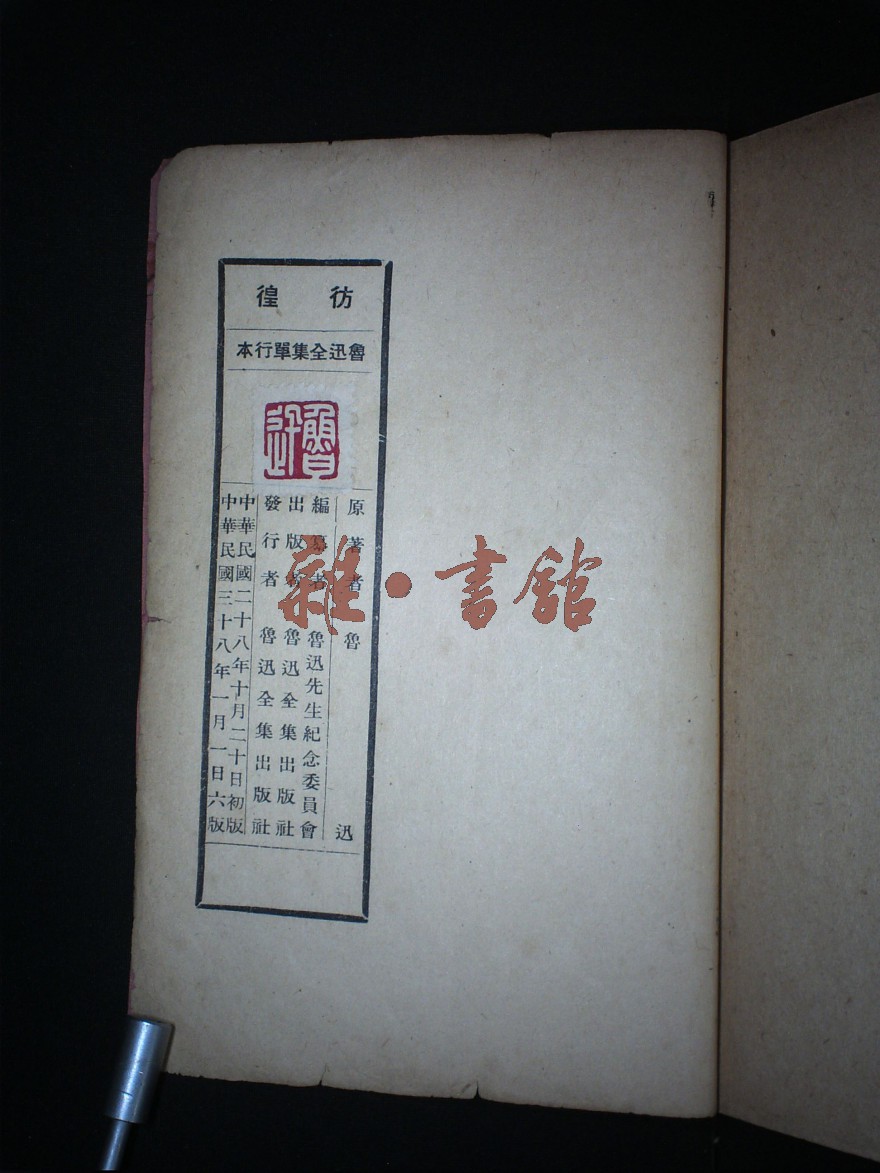 彷徨
魯迅全集單行本
魯迅
原著者 魯迅
編纂者 魯迅先生紀念委員會
出版者 魯迅全集出版社
發行者 魯迅全集出版社
中華民國二十八年十月二十日初版
中華民國三十八年一月一日六版
雜·書館